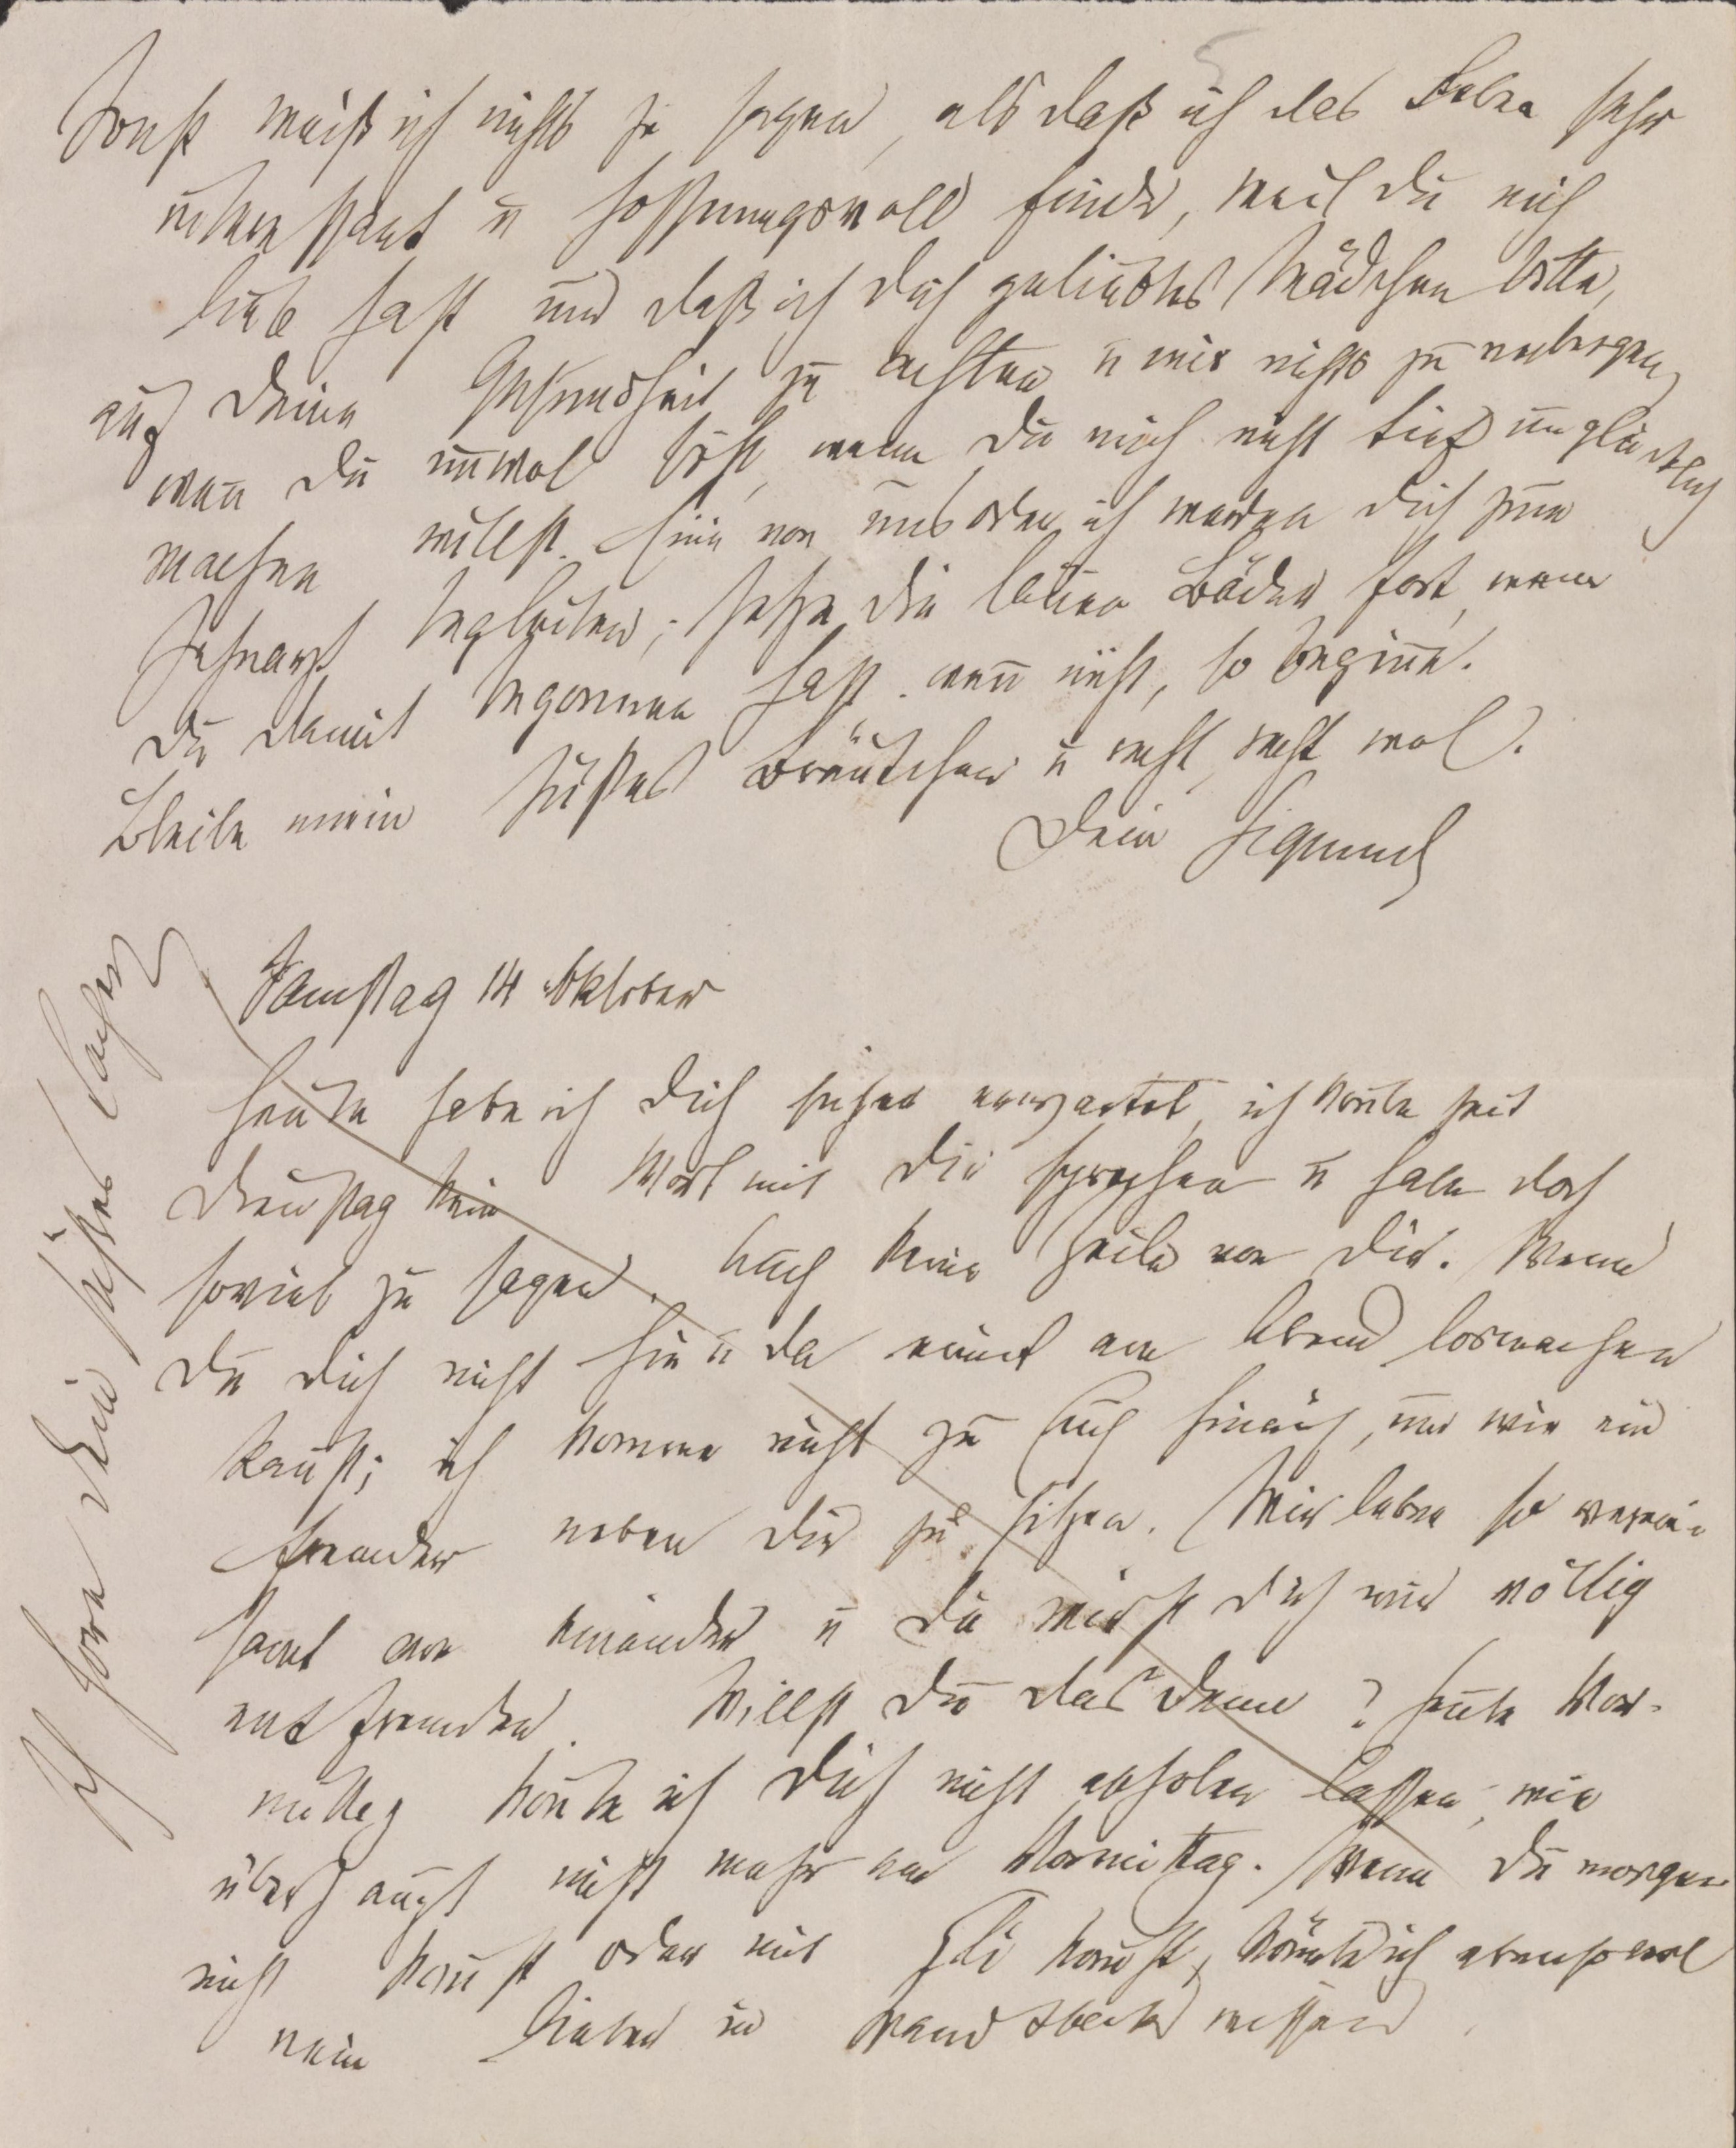 Sonst weiß ich nichts zu sagen, als daß ich das Leben sehr
interessant u hoffnungsvoll finde, weil Du mich
lieb hast und daß ich Dich geliebtes Mädchen bitte,
auf Deine Gesundheit zu achten u mir nichts zu verbergen,
wenn Du unwol bist, wenn Du mich nicht tief unglücklich
machen willst. Eine von uns oder ich werden Dich zum
Zahnarzt begleiten; setze die lauen Bäder fort, wenn
Du damit begonnen hast. wenn nicht, so beginne.
Bleibe mein süßes Bräutchen u recht, recht wol.
Dein Sigmund
Samstag 14 Oktober
Heute habe ich Dich sicher erwartet, ich konnte seit
Dienstag kein Wort mit Dir sprechen u habe doch
soviel zu sagen. Auch keine Zeile von Dir. Wenn
Du Dich nicht hie u da einmal am Abend losmachen
kannst; ich komme nicht zu Euch hinaus, um wie ein
Fremder neben Dir zu sitzen. Wir leben so verein-
samt von einander u Du wirst Dich mir völlig
entfremden. Willst Du das denn? Heute Vor-
mittag konnte ich Dich nicht abholen lassen, wie
überhaupt nicht mehr am Vormittag. Wenn Du morgen
nicht kommst oder mit Eli kommst, könnte ich ebensowol
mein Liebes in Wandsbek wissen.
Ich höre Dein süßes Lachen